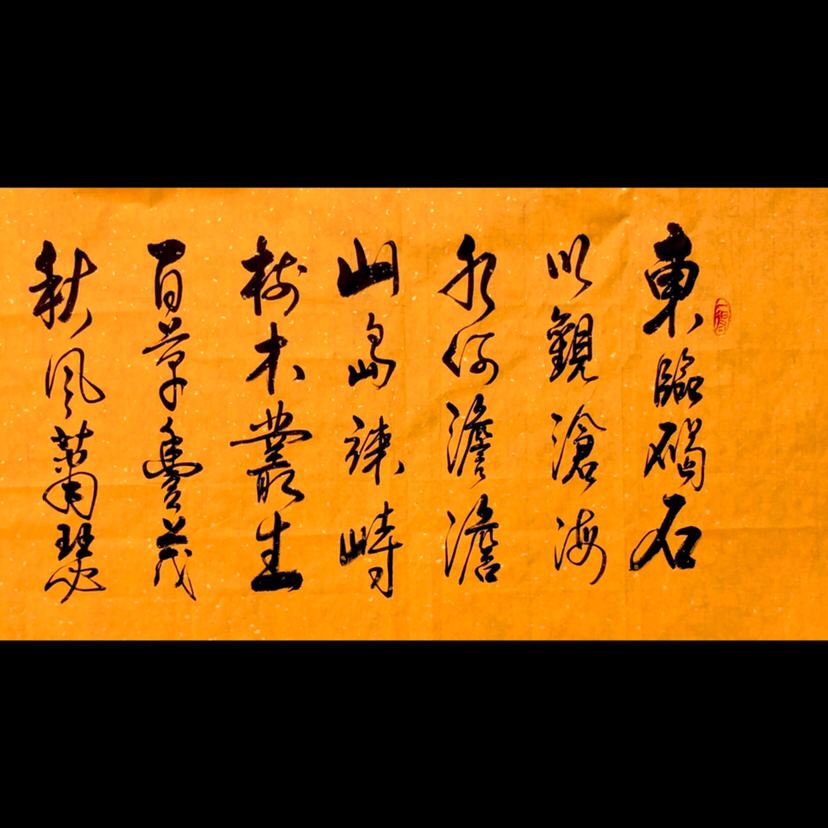 東臨碣石
以觀滄海
水何澹澹
山島竦峙
樹木叢生
百草豐茂
秋風蕭瑟